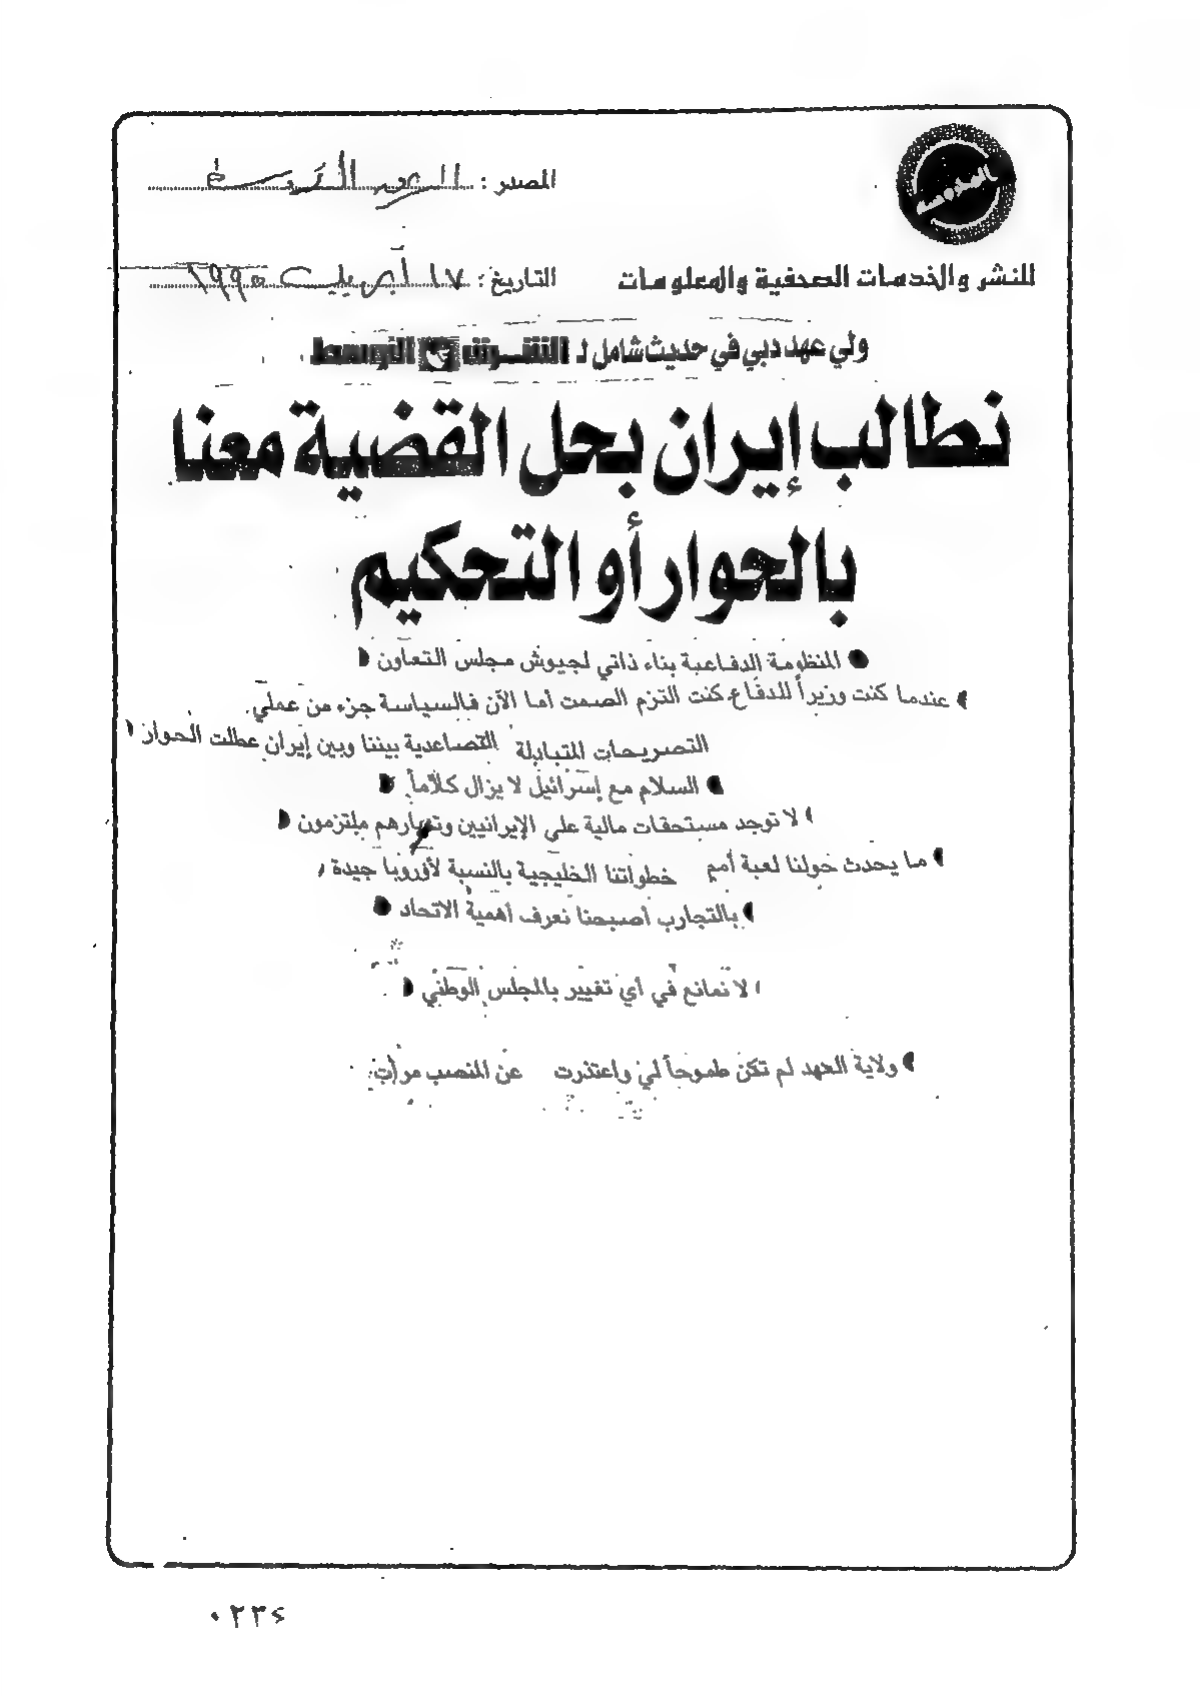 المصدر : الشرق الأوسط
للنشر والخدمات الصحفية والمعلومات
التاريخ : ١٧ أبريل ١٩٩٥
ولي عهد دبي في حديث شامل لـ الشرق الأوسط
نطالب إيران بحل القضية معنا
بالحوار أو التحكيم
● المنظومة الدفاعية بناء ذاتي لجيوش مجلس التعاون
عندما كنت وزيراً للدفاع كنت التزم الصمت أما الآن فالسياسة جزء من عملي
التصريحات المتبادلة التصاعدية بيننا وبين إيران عطلت الحوار
السلام مع إسرائيل لا يزال كلاماً
لا توجد مستحقات مالية على الإيرانيين وتجارهم ملتزمون
ما يحدث حولنا لعبة أمم خطواتنا الخليجية بالنسبة لأوروبا جيدة
بالتجارب أصبحنا نعرف أهمية الاتحاد
لا نمانع في أي تغيير بالمجلس الوطني
ولاية العهد لم تكن طموحاً لي واعتذرت عن المنصب مرات
٠٢٣٤